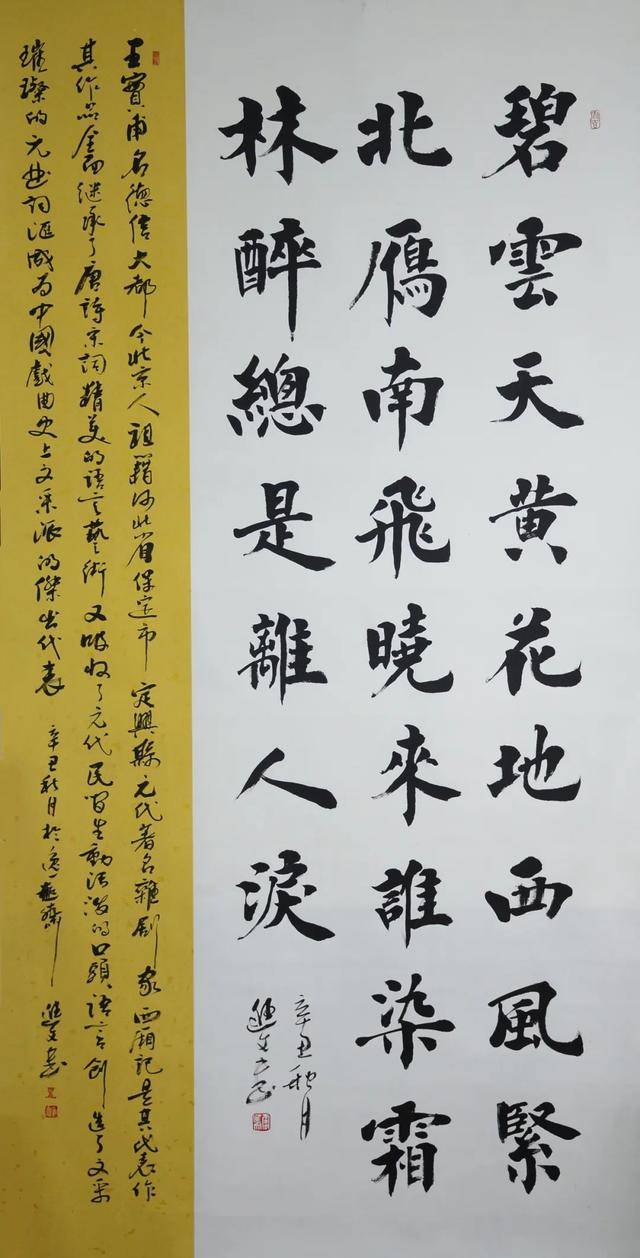 碧雲天黄花地西風緊
北雁南飛曉來誰染霜
林醉總是離人淚
辛丑秋月
進文書
王實甫名德信大都今北京人祖籍河北省保定市定興縣元代著名雜劇家西厢記是其代表作
其作品全面继承了唐詩宋詞精美的語言藝術又吸收了元代民間生動活潑的口頭語言創造了文采
璀璨的元曲詞匯成为中國戲曲史上文采派的傑出代表
辛丑秋月於逸齋進文書